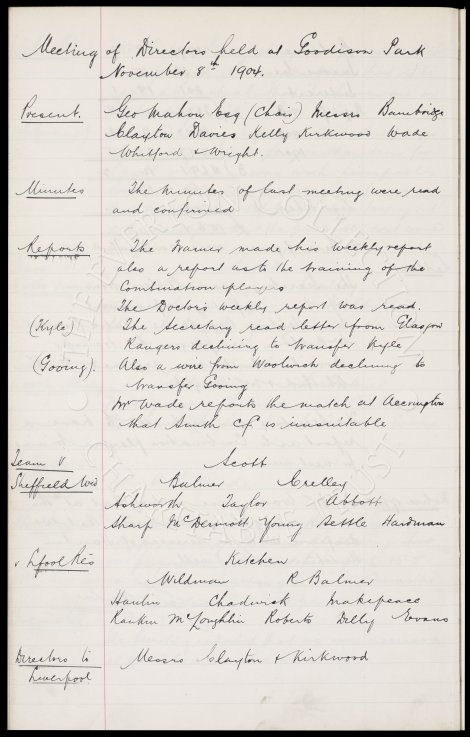 Meeting of Directors held at Goodison Park
November 8th 1904.
Present. Geo Mahon Esq (Chair) Messrs Bainbridge
Clayton Davies Kelly Kirkwood Wade
Whitford & Wright.
Minutes The minutes of last meeting were read
and confirmed
Reports The Trainer made his weekly report
also a report as to the training of the
Combination players
The Doctor's weekly report was read.
(Kyle) The Secretary read letter from Glasgow
Rangers declining to transfer Kyle
(Gooing). Also a wire from Woolwich declining to
transfer Gooing
Mr Wade reports the match at Accrington
that Smith cf is unsuitable
Team v Scott
Sheffield Wed Balmer Crelley
Ashworth Taylor Abbott
Sharp McDermott Young Settle Hardman
v Lpool Res Kitchen
Wildman R Balmer
Chadwick Makepeace
Rankin McLoughlin Roberts Dilly Evans
Directors to Messrs Clayton & Kirkwood
Liverpool